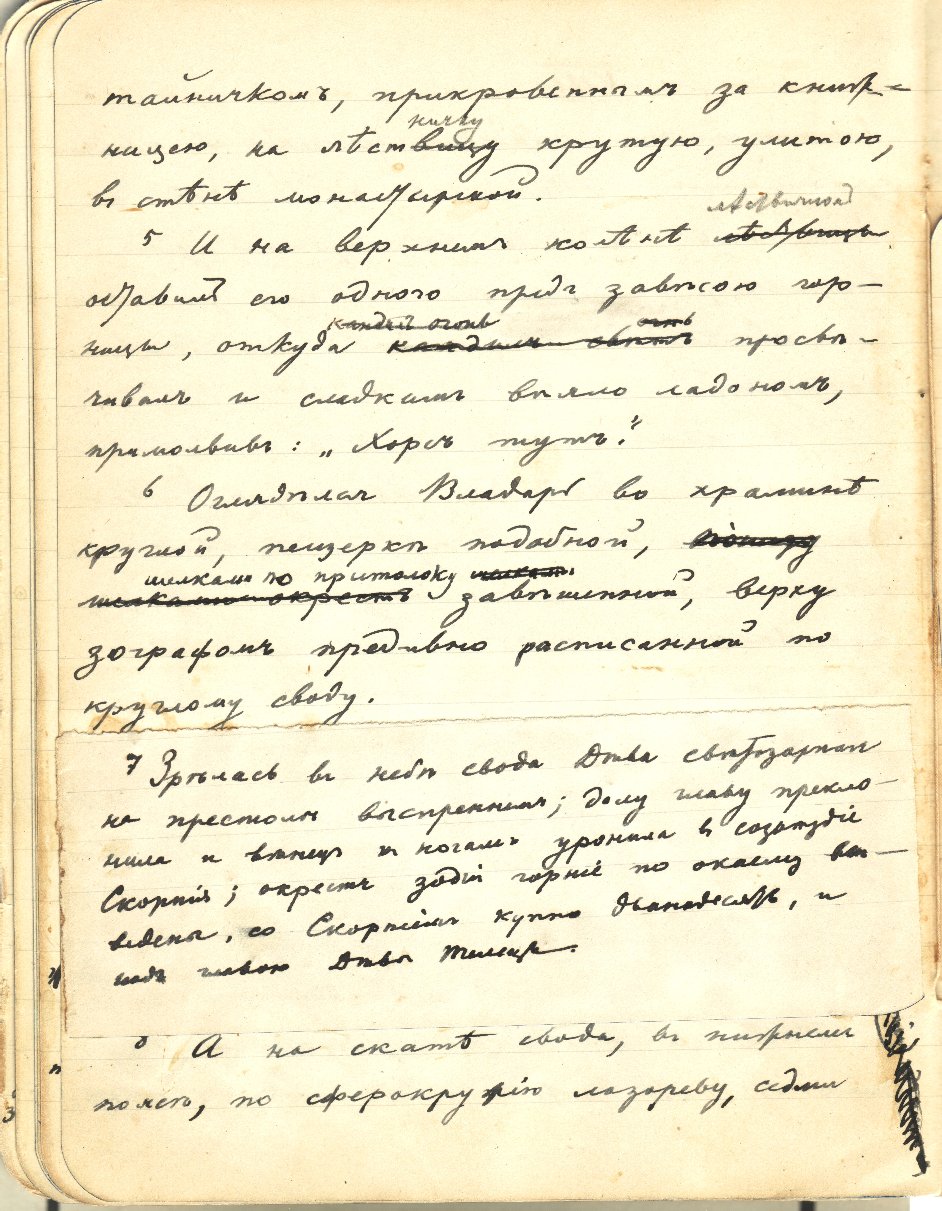 тайничкомъ, прикровеннымъ за книж-
ничку
ницею, на лѣствицу крутую, улитою,
въ стѣнѣ монастырской.
лѣствичной
5 И на верхнимъ колѣнѣ лѣствицы
оставилъ его одного предъ завѣсою гор-
кандилъ огонь огнь
ницы, откуда кандилъ свѣтъ просвѣ-
чивалъ и сладкимъ вѣяло ладономъ,
примолвивъ: „Хорсъ тутъ."
6 Оглядѣлся Владарь во храминѣ
круглой, пещеркѣ подобной,
шелками по притолоку шелками
шелками окрестъ завѣшенной, верху
зографомъ предивно расписанной по
круглому своду.
7 Зрѣлась въ небѣ свода Дѣва свѣтозарная
на престолѣ выспреннемъ; долу главу прекло-
нила и вѣнецъ къ ногамъ уронила въ созвѣздіе
Скорпія; окрестъ зодіи горніе по окаему
ведены, со Скорпіемъ купно дванадесять, и
надъ главою Дѣвы Телецъ.
8 А на скатѣ свода, въ нижнемъ
поясѣ, по сферокружію лазореву, седми